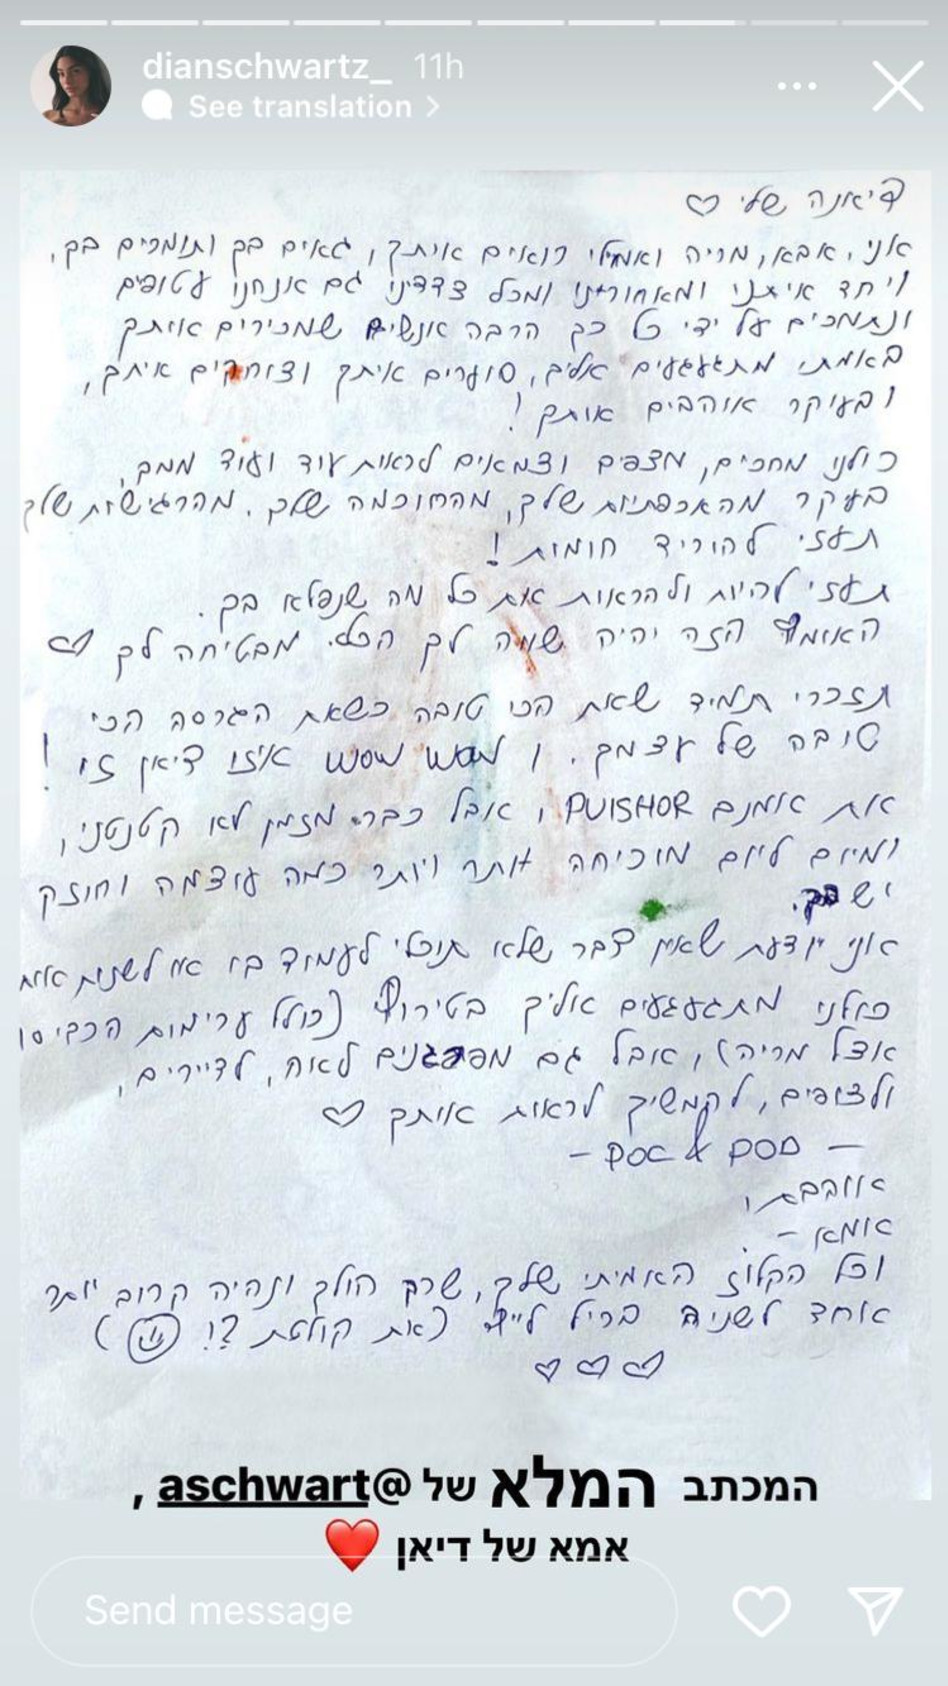 dianschwartz_ 11h
See translation
דיאנה שלי ♡
אני, אבא, מריה ואמילי רואים אותך, גאים בך ותומכים בך,
ויחד איתנו ומאחורינו ומכל צדדינו גם אנחנו עטופים
ונתמכים על ידי כל כך הרבה אנשים שמכירים אותך
באמת, מתגעגעים אליך, סוערים איתך וצוחקים איתך,
ובעיקר אוהבים אותך!
כולנו מחכים, מצפים וצמאים לראות עוד ועוד ממך,
בעיקר מהאכפתיות שלך, מהחוכמה שלך, מהרגישות שלך
תעזי להוריד חומות!
תעזי להיות ולהראות את כל מה שנפלא בך.
האומץ הזה יהיה שווה לך הכל. מבטיחה לך ♡
תזכרי תמיד שאת הכי טובה כשאת הגרסה הכי
טובה של עצמך. ו wow wow איזו דיאן זו!
את אומנם PUISHOR, אבל כבר מזמן לא קטנטני,
ומיום ליום מוכיחה יותר ויותר כמה עוצמה וחוזק
יש בך.
אני יודעת שאין דבר שלא תוכלי לעמוד בו או לשנות אותו
כולנו מתגעגעים אליך בטירוף (כולל ערימות הכביסה
אצל מריה), אבל גם מפרגנים לאח, לדיירים,
ולצופים, להמשיך לראות אותך ♡
— POC & POD —
אוהבת,
אמא -
וכל הקלוז האמיתי שלך, שרק הולך ונהיה קרוב יותר
אחד לשניה בריל לייף (את קולטת?! ☺)
♡ ♡ ♡
המכתב המלא של @aschwart,
אמא של דיאן ❤️
Send message